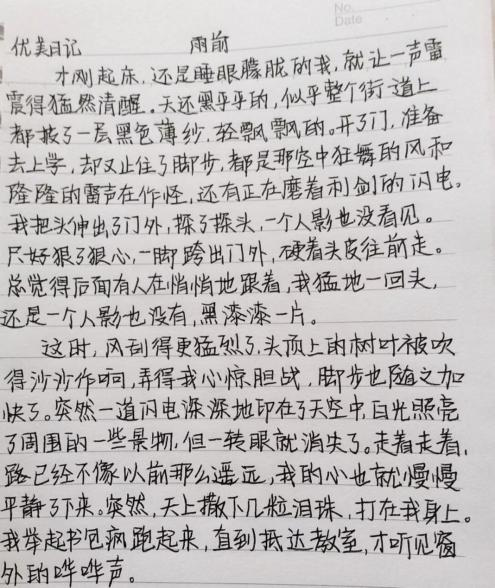 No.
Date
优美日记 雨前
才刚起床,还是睡眼朦胧的我,就让一声雷
震得猛然清醒。天还黑乎乎的,似乎整个街道上
都披了一层黑色薄纱,轻飘飘的。开了门,准备
去上学,却又止住了脚步,都是那空中狂舞的风和
隆隆的雷声在作怪,还有正在磨着利剑的闪电。
我把头伸出了门外,探了探头,一个人影也没看见。
只好狠了狠心,一脚跨出门外,硬着头皮往前走。
总觉得后面有人在悄悄地跟着,我猛地一回头,
还是一个人影也没有,黑漆漆一片。
这时,风刮得更猛烈了,头顶上的树叶被吹
得沙沙作响,弄得我心惊胆战,脚步也随之加
快了。突然一道闪电深深地印在了天空中,白光照亮
了周围的一些景物,但一转眼就消失了。走着走着,
路已经不像以前那么遥远,我的心也就慢慢
平静了下来。突然,天上撒下几粒泪珠,打在我身上。
我举起书包疯跑起来,直到抵达教室,才听见窗
外的哗哗声。